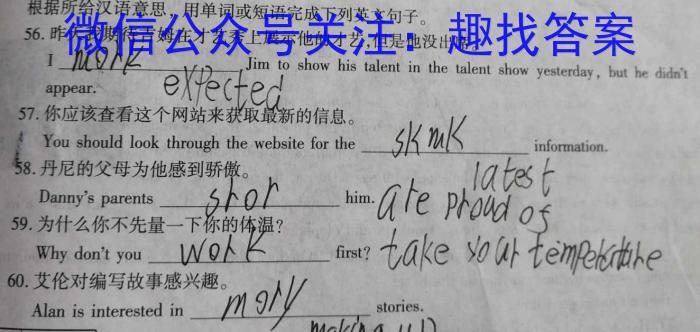 根据所给汉语意思，用单词或短语完成下列英文句子。
微信公众号关注：趣找答案
56. 昨天我期待吉姆在才艺秀上展示他的才艺，但是他没出
I work Jim to show his talent in the talent show yesterday, but he didn't
appear. expected
57. 你应该查看这个网站来获取最新的信息。
You should look through the website for the information.
latest
58. 丹尼的父母为他感到骄傲。
Danny's parents him. are proud of
59. 为什么你不先量一下你的体温？
Why don't you work first? take your temperature
60. 艾伦对编写故事感兴趣。
Alan is interested in stories.
making up